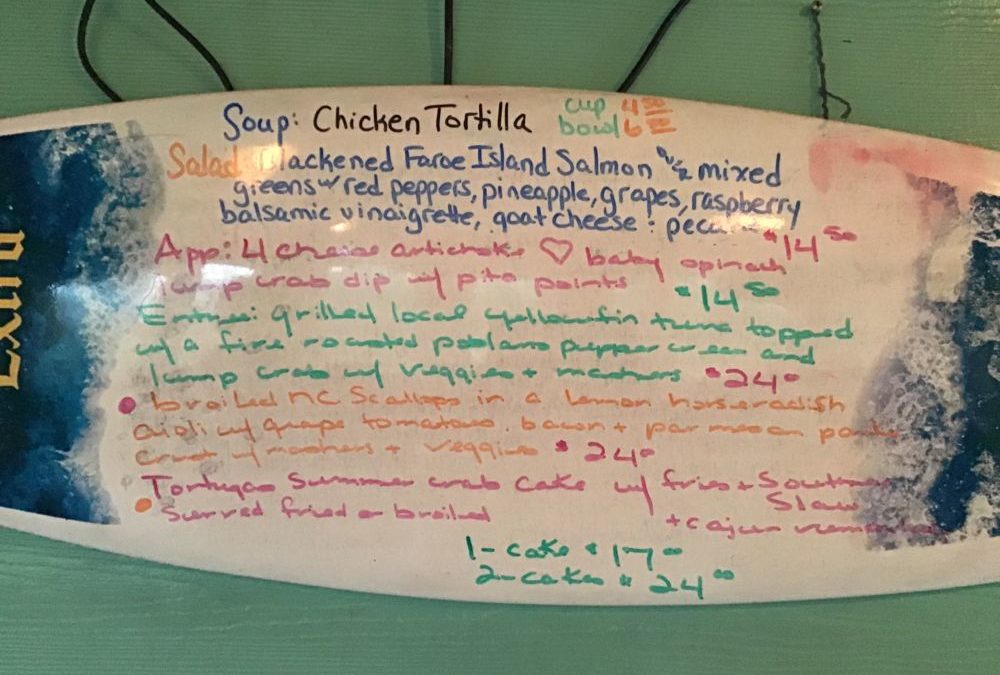 Extra
Soup: Chicken Tortilla cup 4 50
bowl 6 00
Salad: Blackened Faroe Island Salmon w/ mixed
greens w/ red peppers, pineapple, grapes, raspberry
balsamic vinaigrette, goat cheese $14 50
App: 4 cheese artichoke ♡ baby spinach
lump crab dip w/ pita points $14 50
Entree: grilled local yellowfin tuna topped
w/ a fire roasted poblano pepper cream and
lump crab w/ veggies + mashers $24 00
• broiled NC Scallops in a lemon horseradish
aioli w/ grape tomatoes, bacon + parmesan panko
crust w/ mashers + veggies $24 00
Tortugas Summer crab cake w/ fries + Southern
Slaw
• Served fried or broiled + cajun remoulade
1-cake $17 00
2-cakes $24 00